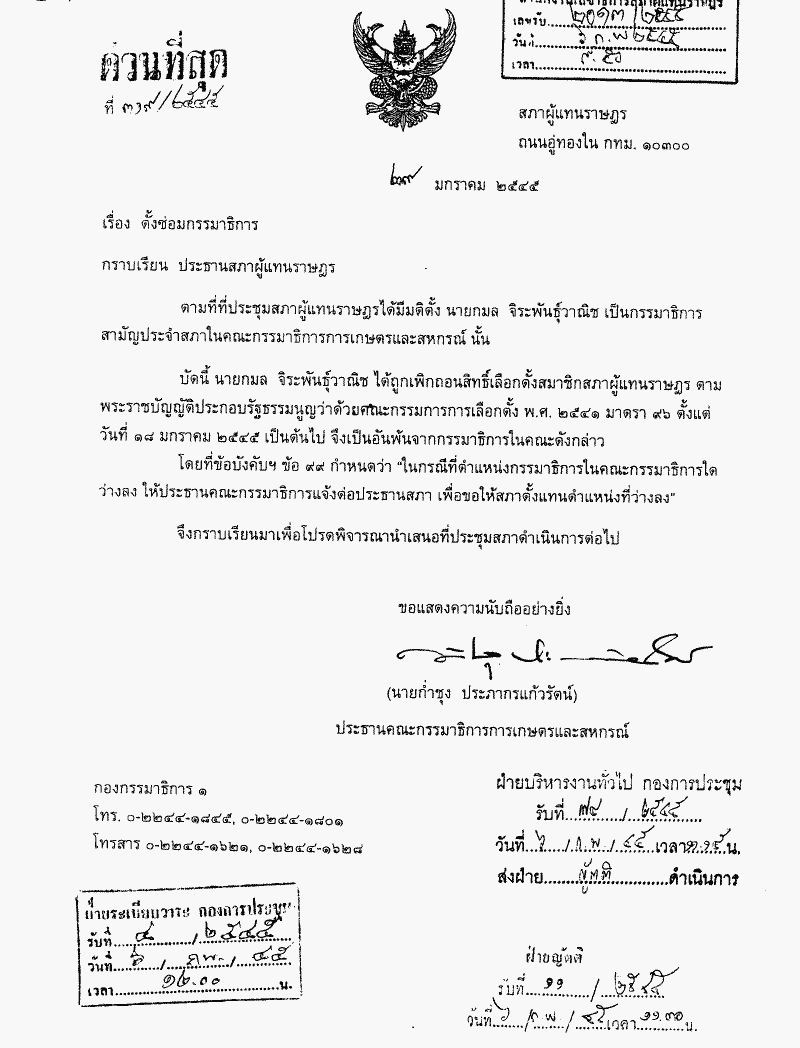 ด่วนที่สุด
ที่ ๓๑๙/๒๕๔๕
เลขรับ ๒๐๑๓/๒๕๔๕
วันที่ ๖ ก.พ ๒๕๔๕
เวลา
สภาผู้แทนราษฎร
ถนนอู่ทองใน กทม. ๑๐๓๐๐
๒๙ มกราคม ๒๕๔๕
เรื่อง ตั้งซ่อมกรรมาธิการ
กราบเรียน ประธานสภาผู้แทนราษฎร
ตามที่ที่ประชุมสภาผู้แทนราษฎรได้มีมติตั้ง นายกมล จิระพันธุ์วาณิช เป็นกรรมาธิการ
สามัญประจำสภาในคณะกรรมาธิการการเกษตรและสหกรณ์ นั้น
บัดนี้ นายกมล จิระพันธุ์วาณิช ได้ถูกเพิกถอนสิทธิ์เลือกตั้งสมาชิกสภาผู้แทนราษฎร ตาม
พระราชบัญญัติประกอบรัฐธรรมนูญว่าด้วยคณะกรรมการการเลือกตั้ง พ.ศ. ๒๕๔๑ มาตรา ๙๖ ตั้งแต่
วันที่ ๑๘ มกราคม ๒๕๔๕ เป็นต้นไป จึงเป็นอันพ้นจากกรรมาธิการในคณะดังกล่าว
โดยที่ข้อบังคับฯ ข้อ ๙๙ กำหนดว่า "ในกรณีที่ตำแหน่งกรรมาธิการในคณะกรรมาธิการใด
ว่างลง ให้ประธานคณะกรรมาธิการแจ้งต่อประธานสภา เพื่อขอให้สภาตั้งแทนตำแหน่งที่ว่างลง"
จึงกราบเรียนมาเพื่อโปรดพิจารณานำเสนอที่ประชุมสภาดำเนินการต่อไป
ขอแสดงความนับถืออย่างยิ่ง
(นายก่ำชุง ประภากรแก้วรัตน์)
ประธานคณะกรรมาธิการการเกษตรและสหกรณ์
กองกรรมาธิการ ๑
โทร. ๐-๒๒๔๔-๑๘๔๕, ๐-๒๒๔๔-๑๘๐๑
โทรสาร ๐-๒๒๔๔-๑๖๒๑, ๐-๒๒๔๔-๑๖๒๘
ฝ่ายบริหารงานทั่วไป กองการประชุม
รับที่ ๗๙ / ๒๕๔๕
วันที่ ๖ / ก.พ / ๔๕ เวลา น.
ส่งฝ่าย ญัตติ ดำเนินการ
ฝ่ายระเบียบวาระ กองการประชุม
รับที่ ๔ / ๒๕๔๕
วันที่ ๖ / กพ. / ๔๕
เวลา ๑๒.๐๐ น.
ฝ่ายญัตติ
รับที่ ๑๑ / ๒๕๔๕
วันที่ ๖ / ก.พ / ๔๕ เวลา ๑๑.๓๐ น.